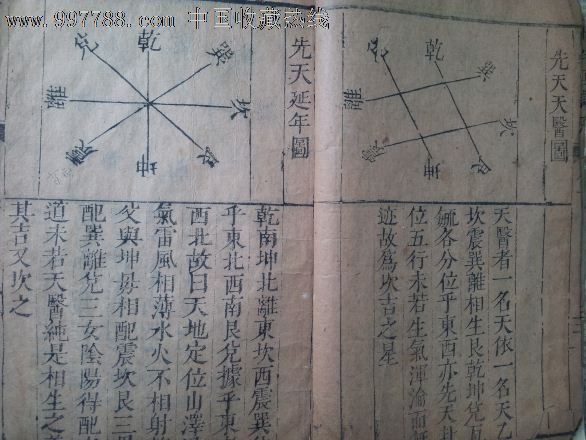 www.997788.com 中国收藏热线
先天天醫圖
乾
巽
坎
艮
坤
震
離
兌
天醫者一名天依一名天乙
坎震巽離相生艮乾坤兌互
毓各分位乎東西亦先天
位五行未若生氣渾淪而
跡故為坎吉之星
先天延年圖
乾
巽
坎
艮
坤
震
離
兌
乾南坤北離東坎西震巽
乎東北西南艮兌據乎東
西北故曰天地定位山澤
氣雷風相薄水火不相射
父與坤母相配震坎艮三
配巽離兌三女陰陽得配
道未若天醫純是相生之
其吉又坎之